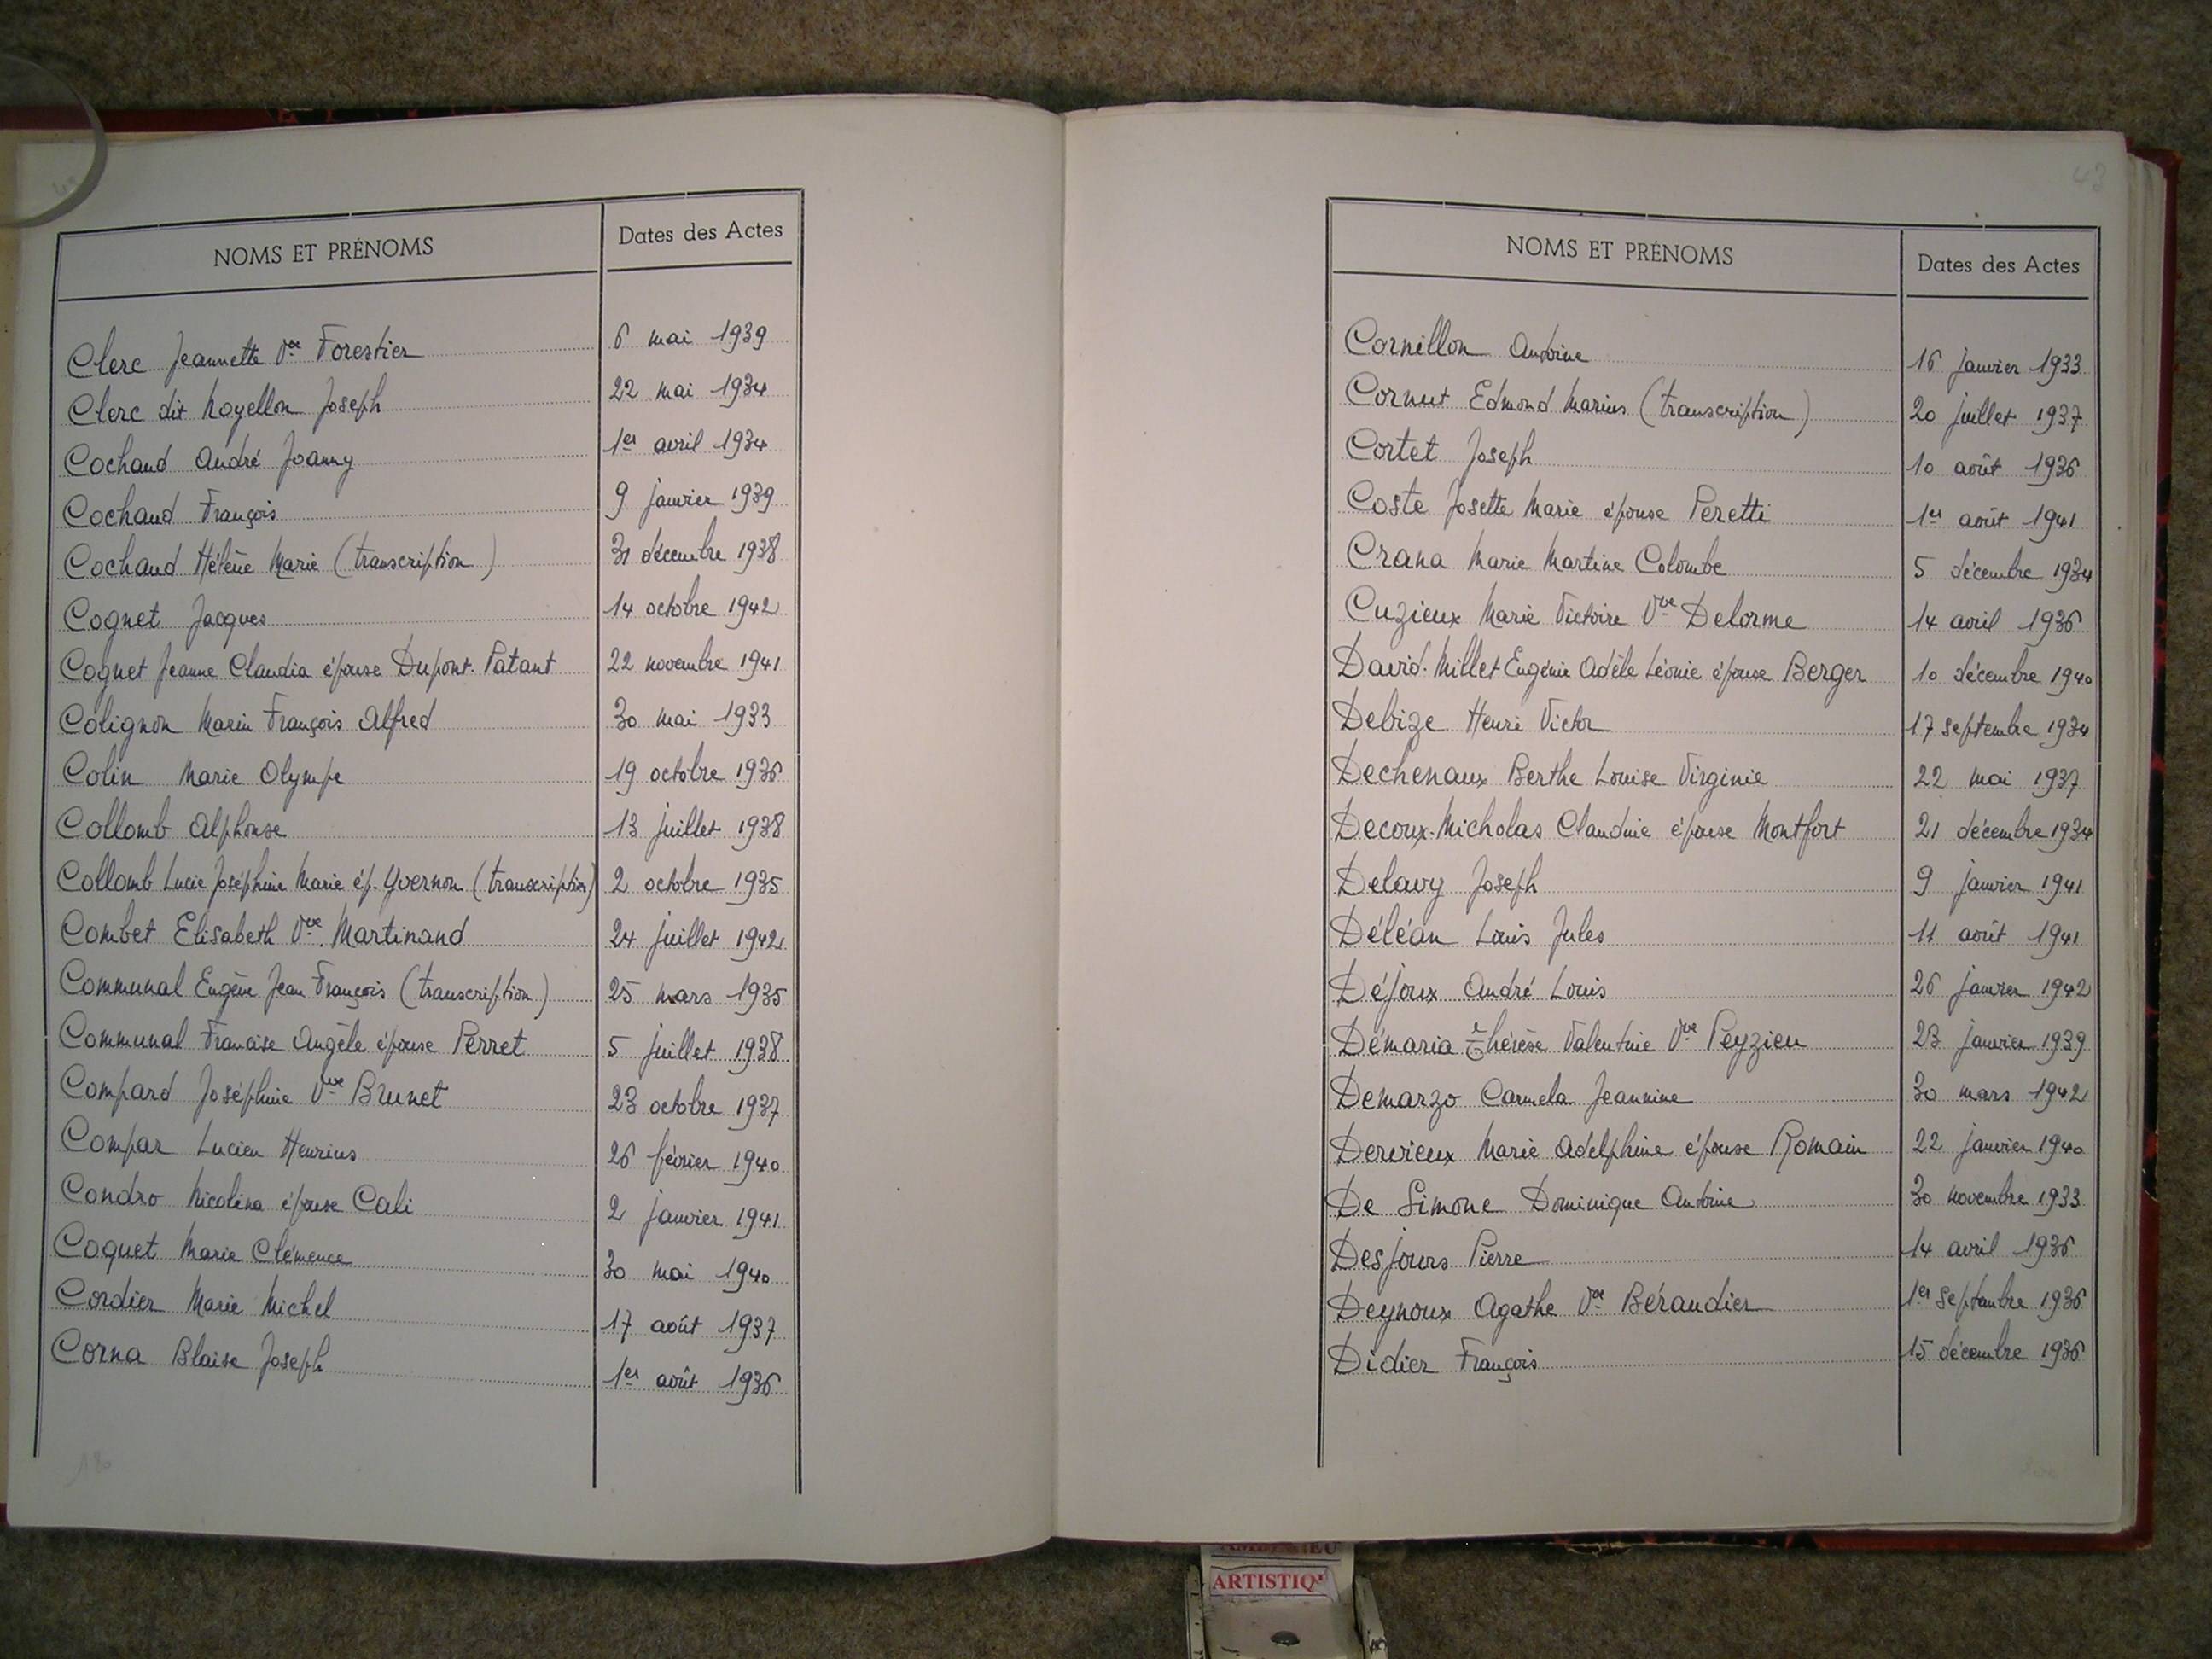 NOMS ET PRÉNOMS Dates des Actes
Clerc Jeannette Vve Forestier 6 mai 1939
Clerc dit Noyellon Joseph 22 mai 1934
Cochaud André Joanny 1er avril 1934
Cochaud François 9 janvier 1939
Cochaud Hélène Marie (transcription) 31 décembre 1938
Cognet Jacques 14 octobre 1942
Cognet Jeanne Claudia épouse Dupont-Patant 22 novembre 1941
Colignon Marin François Alfred 30 mai 1933
Colin Marie Olympe 19 octobre 1936
Collomb Alphonse 13 juillet 1938
Collomb Lucie Joséphine Marie ép. Yvernon (transcription) 2 octobre 1935
Combet Elisabeth Vve Martinand 24 juillet 1942
Communal Eugène Jean François (transcription) 25 mars 1935
Communal Francise Angèle épouse Perret 5 juillet 1938
Compard Joséphine Vve Brunet 23 octobre 1937
Compar Lucien Henrius 26 février 1940
Condro Nicolina épouse Cali 2 janvier 1941
Coquet Marie Clémence 30 mai 1940
Cordier Marie Michel 17 août 1937
Corna Blaise Joseph 1er août 1936
43
NOMS ET PRÉNOMS Dates des Actes
Cornillon Antoine 16 janvier 1933
Cornut Edmond Marius (transcription) 20 juillet 1937
Cortet Joseph 10 août 1936
Coste Josette Marie épouse Peretti 1er août 1941
Crana Marie Martine Colombe 5 décembre 1934
Cuzieux Marie Victoire Vve Delorme 14 avril 1936
David-Millet Eugénie Adèle Léonie épouse Berger 10 décembre 1940
Debize Henri Victor 17 septembre 1934
Dechenaux Berthe Louise Virginie 22 mai 1937
Decoux-Micholas Claudine épouse Montfort 21 décembre 1934
Delavy Joseph 9 janvier 1941
Déléan Louis Jules 11 août 1941
Déjoux André Louis 26 janvier 1942
Démaria Thérèse Valentine Vve Peyzieu 23 janvier 1939
Demarzo Carmela Jeannine 30 mars 1942
Dervieux Marie Adelphine épouse Romain 22 janvier 1940
De Simone Dominique Antoine 30 novembre 1933
Desjours Pierre 14 avril 1936
Deynoux Agathe Vve Béraudier 1er septembre 1936
Didier François 15 décembre 1936
ARTISTIQ